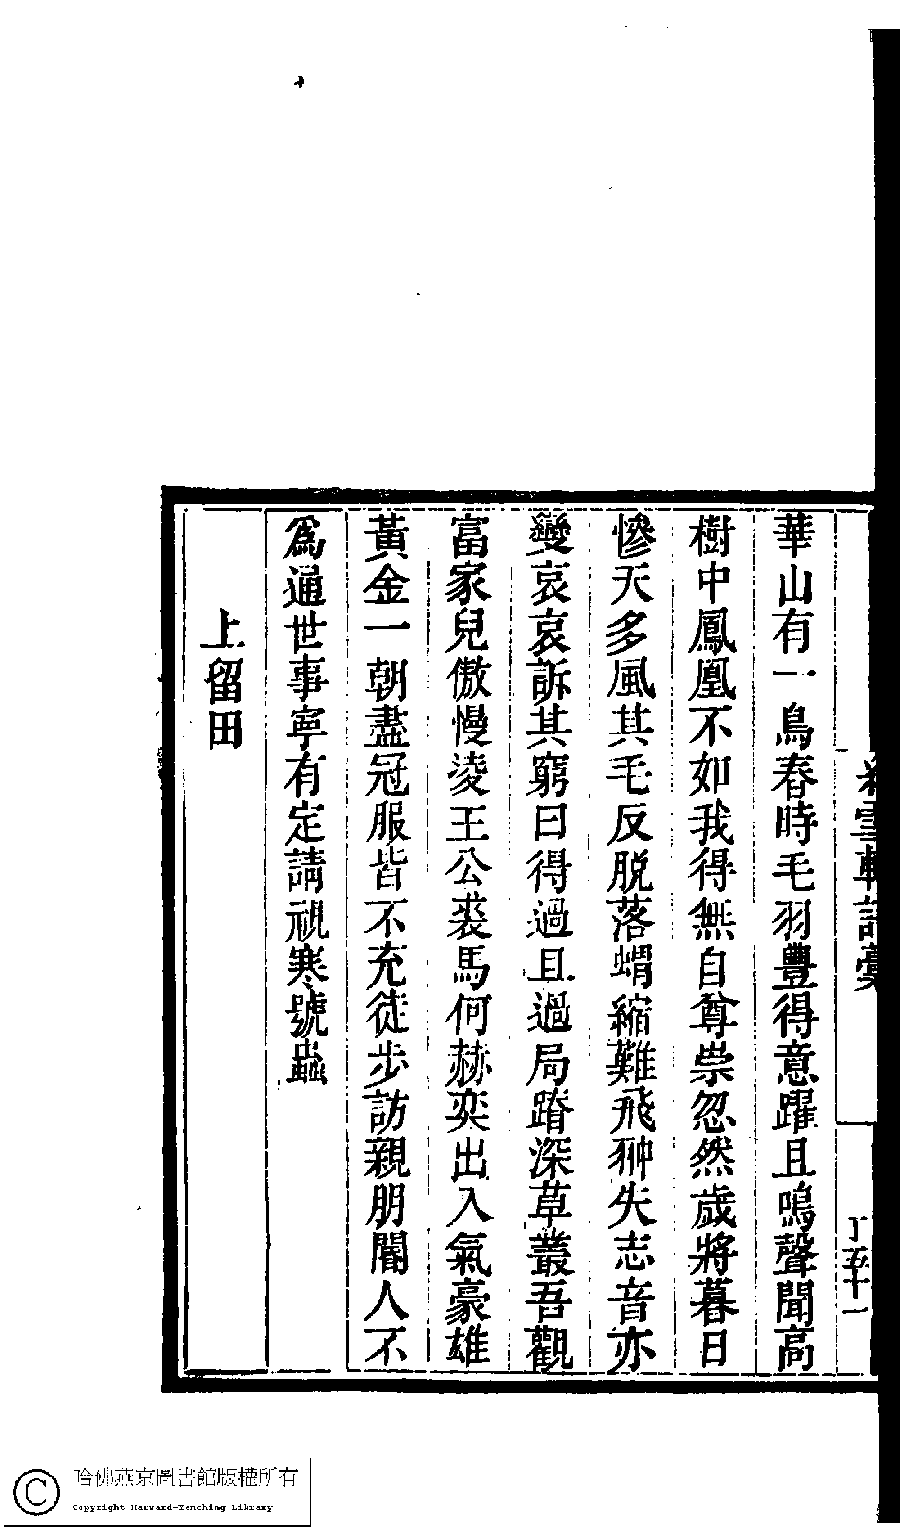 華山有一鳥春時毛羽豐得意躍且鳴聲聞高
樹中鳳凰不如我得無自尊崇忽然歲將暮日
慘天多風其毛反脫落蝟縮難飛翀失志音亦
變哀哀訴其窮曰得過且過局蹐深草叢吾觀
富家兒傲慢淩王公裘馬何赫奕出入氣豪雄
黃金一朝盡冠服皆不充徒步訪親朋閽人不
爲通世事寧有定請視寒號蟲
上留田
雪軒詩彙
丁五十一
哈佛燕京圖書館版權所有
Copyright Harvard-Yenching Library